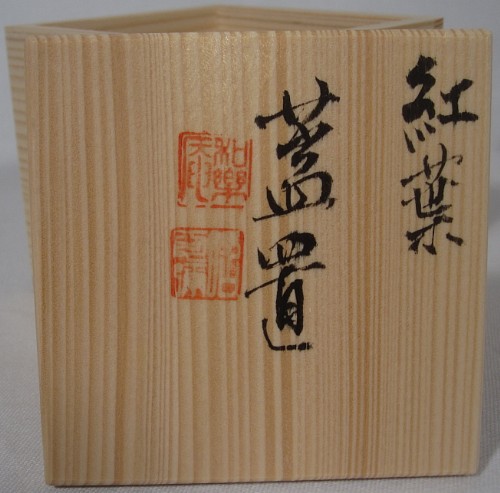 紅葉
蓋置